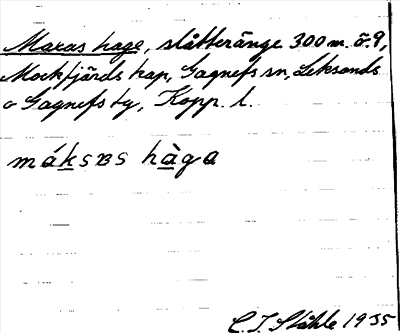 Maxas hage, slåtteränge 300 m. ö. 9,
Mockfjärds kap, Gagnefs sn, Leksands
o Gagnefs tg, Kopp. l.
máksɐs hàga
C. I. Ståhle 1935